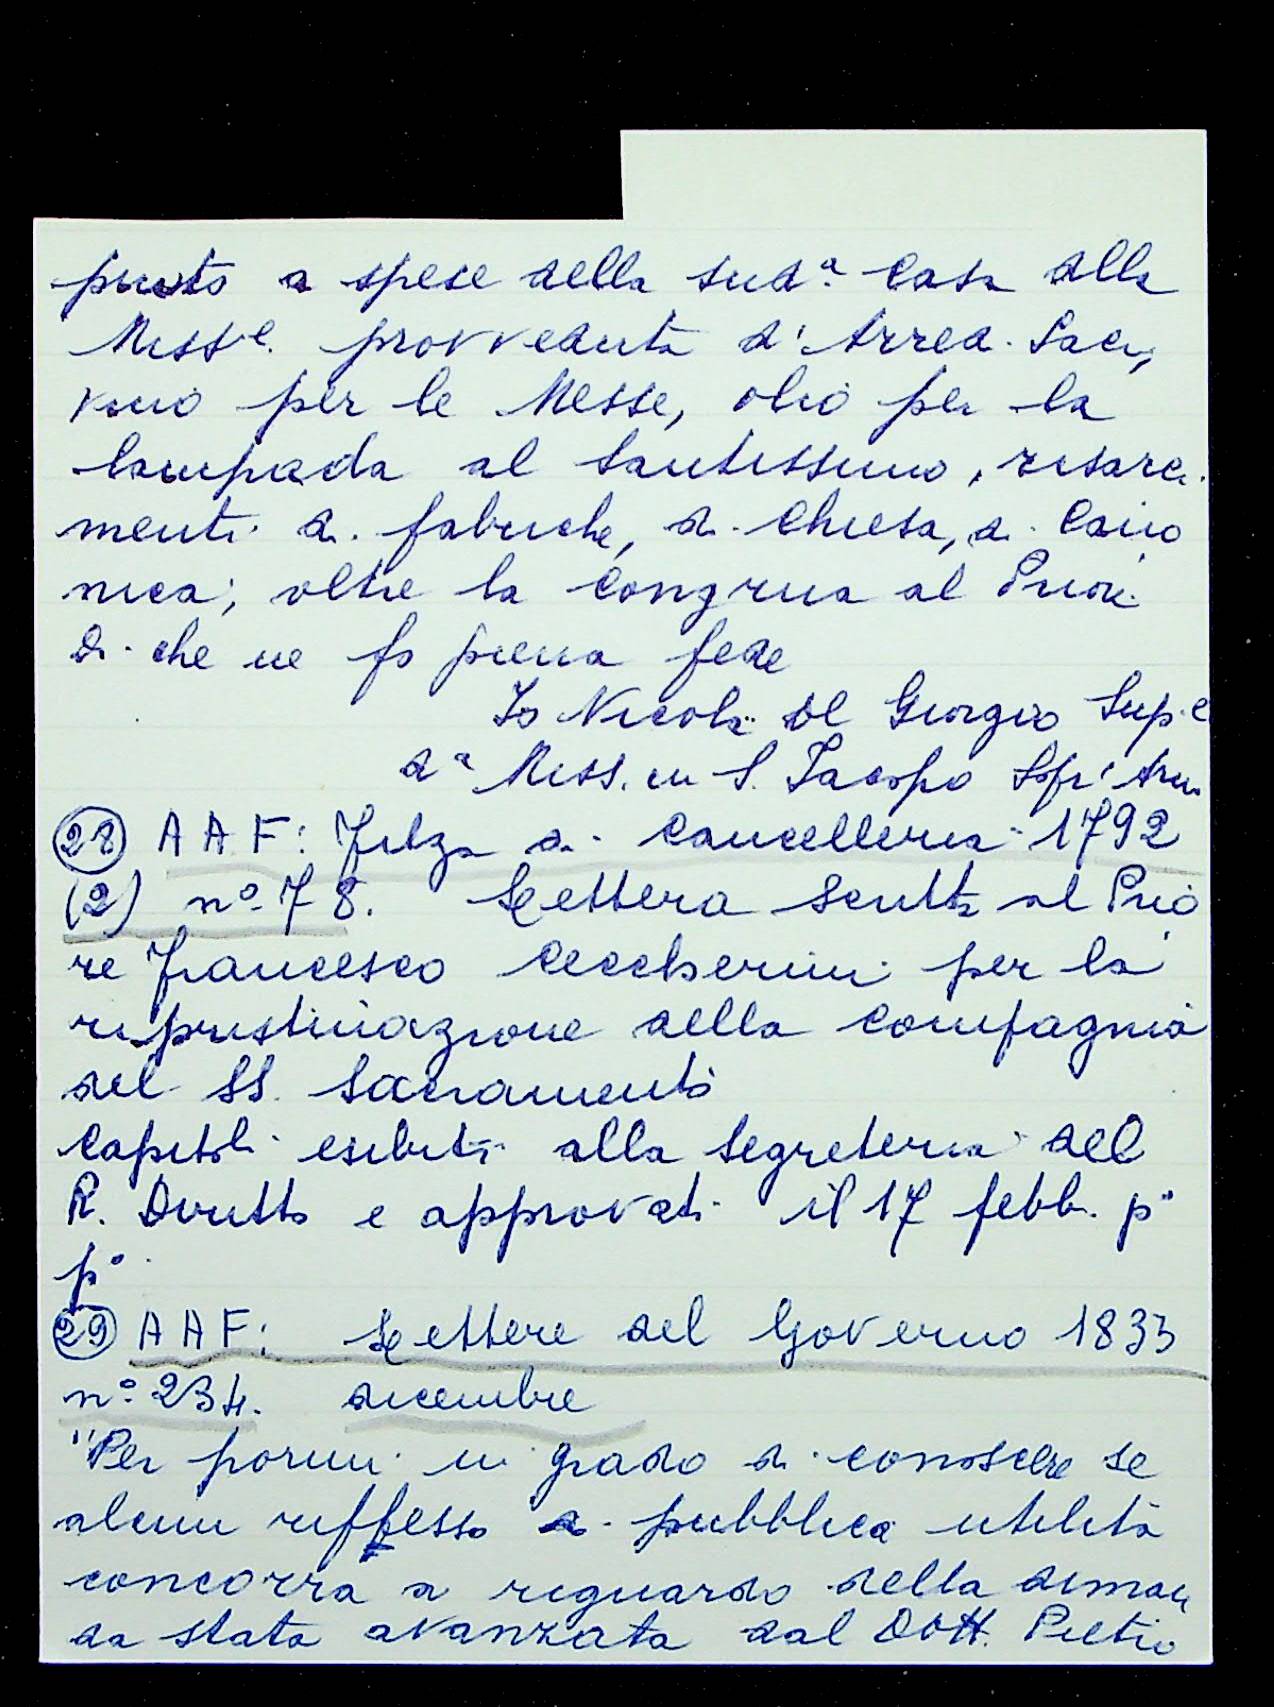 a spese della sud.ª Casa alla
Miss.e. provveduta d'Arred. Sacri,
vino per le Messe, olio per la
lampada al Santissimo, risarci-
menti di fabriche, di Chiesa, di Cano
nica; oltre la Congrua al Priore.
Di che ne fo piena fede
Io Nicola del Giorgio Sup.e
dª Miss. in S. Jacopo Sopr'Arno
(28) A A F: Filza di Cancelleria 1792
(2) n°. 78. Lettera scritta al Prio
re Francesco Ceccherini per la
ripristinazione della Compagnia
del SS. Sacramento
Capitoli esibiti alla Segreteria del
R. Diritto e approvati il 17 febb. p°
p°.
(29) A A F: Lettere del Governo 1833
n°. 234. dicembre
"Per pormi in grado di conoscere se
alcun riflesso di pubblica utilità
concorra a riguardo della diman
da stata avanzata dal Dott. Pietro